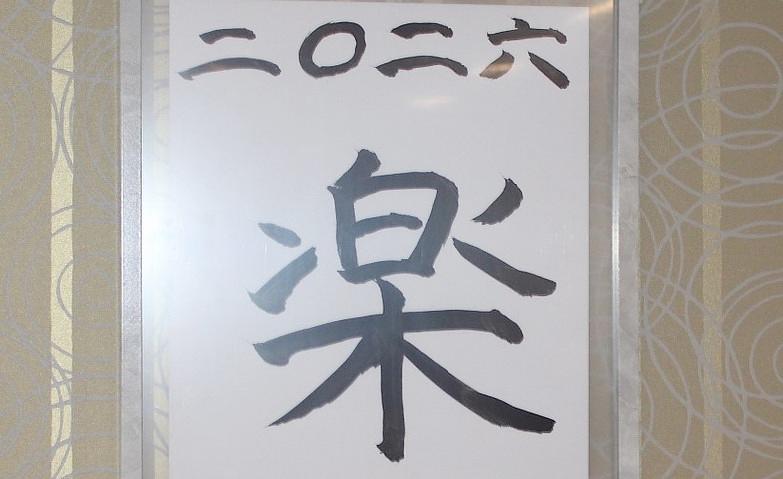 二〇二六
楽